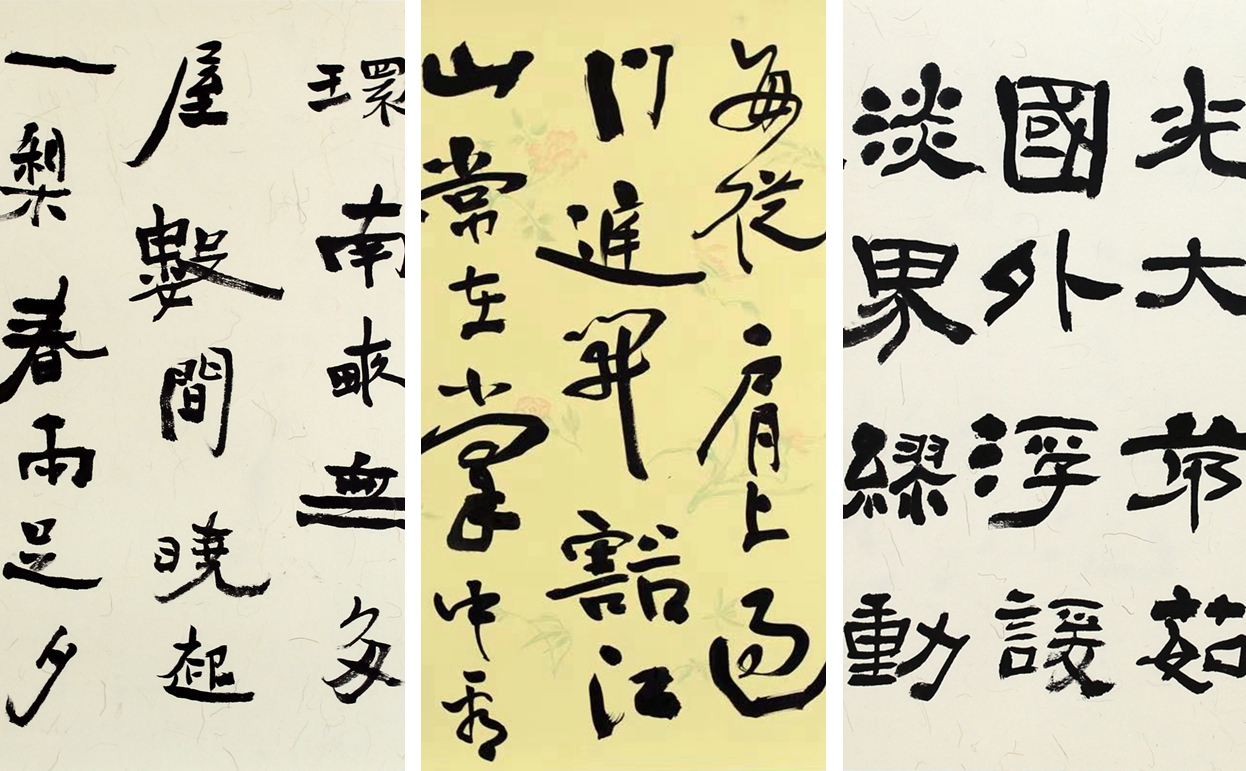 環南畝無多
屋數間曉起
一梨春雨足夕
每從肩上過
門進開豁江
山常在掌中看
光大茹
國外浮諼
淡界繆動